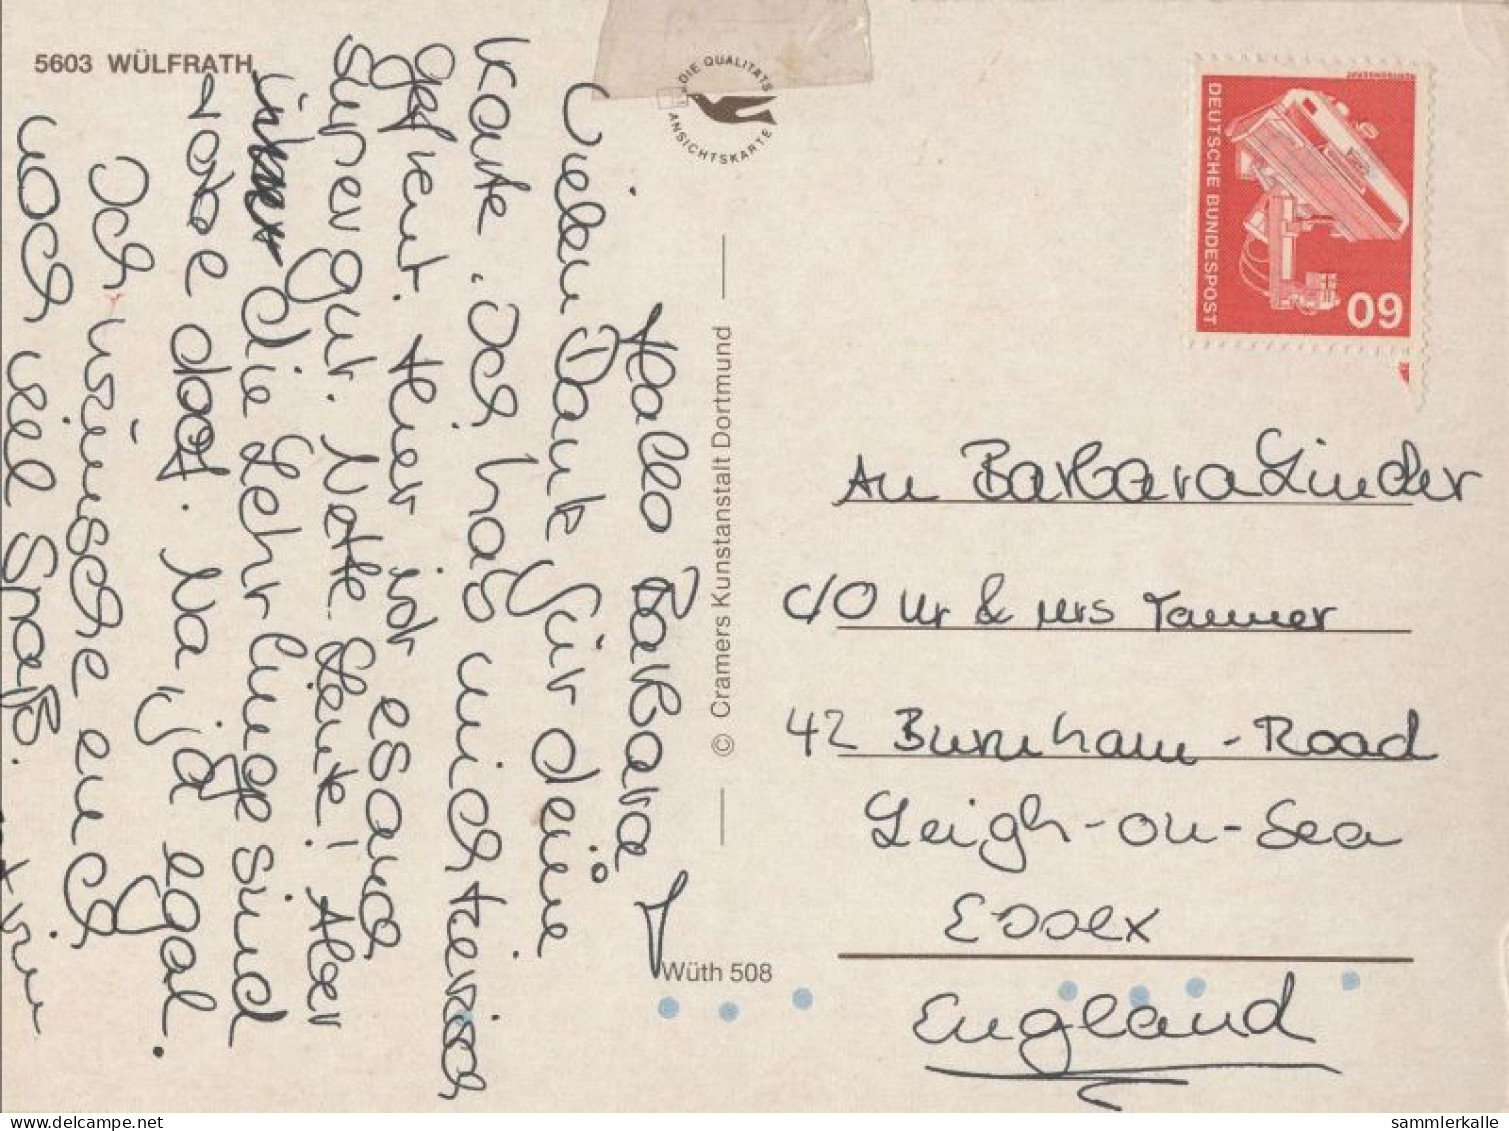 5603 WÜLFRATH
DIE QUALITÄTS
ANSICHTSKARTE
DEUTSCHE BUNDESPOST
60
Hallo Barbara!
Vielen Dank für deine
Karte. Ich hab mich tierisch
gefreut. Hier ist es auch
supergut. Nette Leute! Aber
über die Lehrlinge sind
doof. Na ja, egal.
Ich wünsche euch
noch viel Spaß.
© Cramers Kunstanstalt Dortmund
Wüth 508
An Barbara Linder
c/o Mr & Mrs Tanner
42 Burnham-Road
Leigh-on-Sea
Essex
England
sammlerkalle